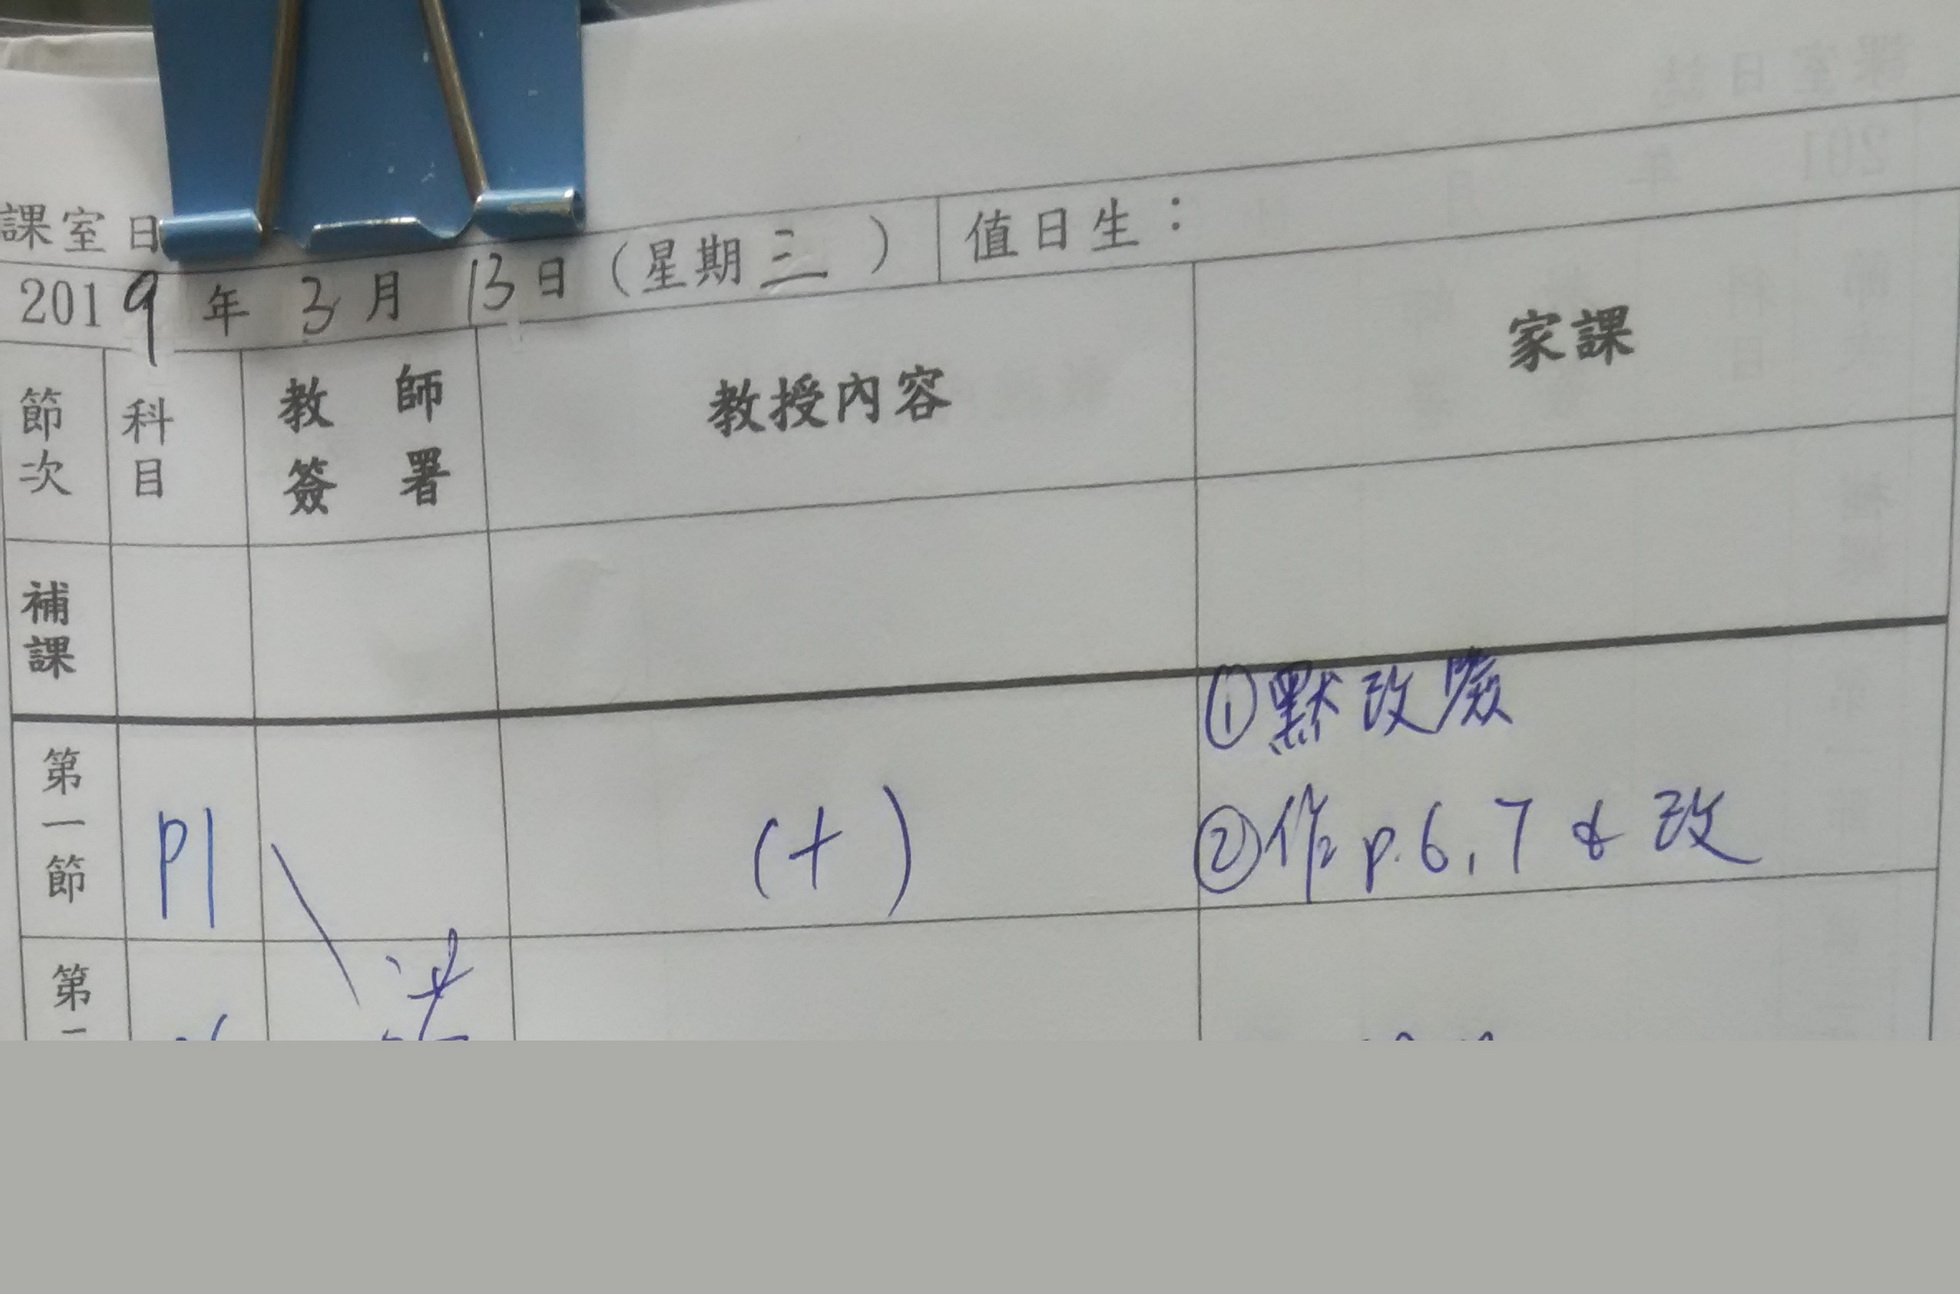 課室日
2019年3月13日(星期三) 值日生：
節次 科目 教師簽署 教授內容 家課
補課
第一節 P1 (十) ①默改
②作 p.6,7 & 改
第二